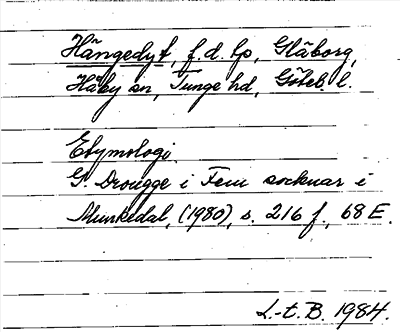 Hängedyt, f.d. lp, Glåborg,
Håby sn, Tunge hd, Göteb l.
Etymologi.
G. Drougge i Fem socknar i
Munkedal, (1980), s. 216 f., 68 E.
L.-t. B. 1984.